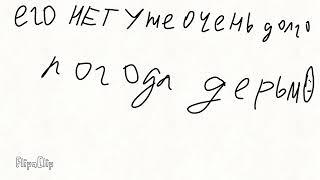 его нет уже очень долго
погода дерьмо
FlipaClip